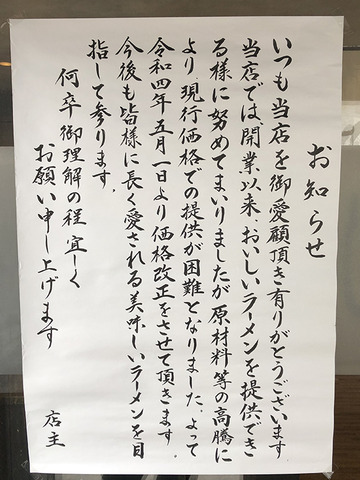 お知らせ
いつも当店を御愛顧頂き有りがとうございます
当店では、開業以来、おいしいラーメンを提供でき
る様に努めてまいりましたが原材料等の高騰に
より、現行価格での提供が困難となりました。よって
令和四年五月一日より価格改正をさせて頂きます。
今後も皆様に長く愛される美味しいラーメンを目
指して参ります。
何卒御理解の程宜しく
お願い申し上げます
店主